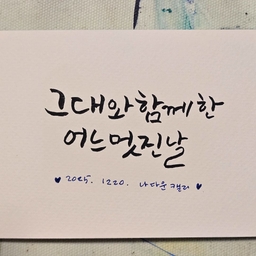 그대와 함께 한
어느 멋진 날
♥ 2025. 1220. 나다운캘리 ♥